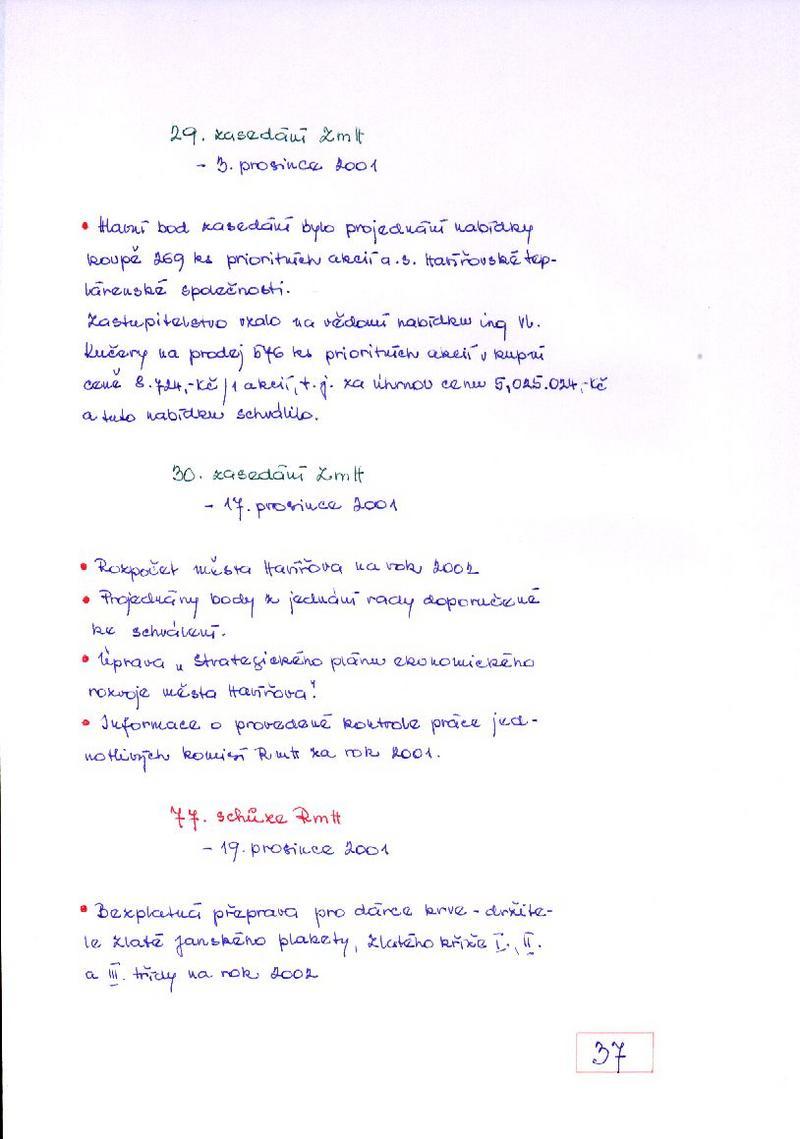 29. zasedání ZmH
- 3. prosince 2001
• Hlavní bod zasedání bylo projednání nabídky
koupě 269 ks prioritních akcií a.s. Havířovské tep-
lárenské společnosti.
Zastupitelstvo vzalo na vědomí nabídku ing Vl.
Kučery na prodej 576 ks prioritních akcií v kupní
ceně 8.724,-Kč/1 akcii, t.j. za úhrnou cenu 5,025.024,-Kč
a tuto nabídku schválilo.
30. zasedání ZmH
- 17. prosince 2001
• Rozpočet města Havířova na rok 2002
• Projednány body z jednání rady doporučené
ke schválení.
• Úprava „Strategického plánu ekonomického
rozvoje města Havířova“.
• Informace o provedené kontrole práce jed-
notlivých komisí RmH za rok 2001.
77. schůze RmH
- 19. prosince 2001
• Bezplatná přeprava pro dárce krve - držite-
le zlaté Janského plakety, Zlatého kříže I., II.
a III. třídy na rok 2002
37